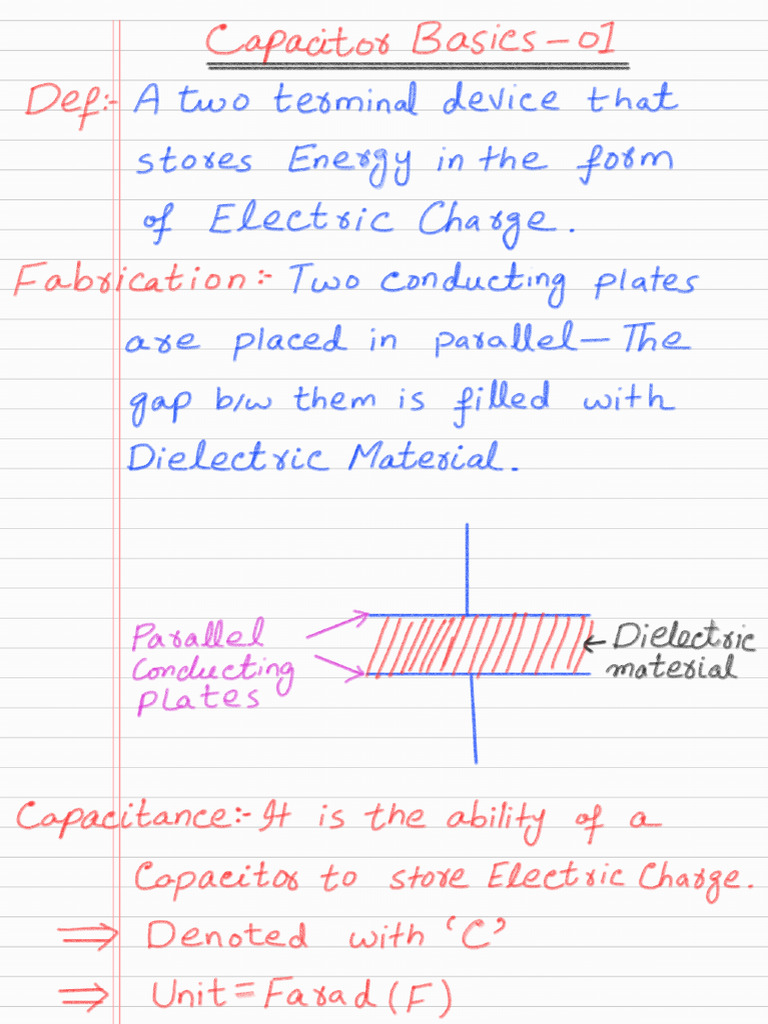 Capacitor Basics-01
Def:- A two terminal device that
stores Energy in the form
of Electric Charge.
Fabrication:- Two conducting plates
are placed in parallel- The
gap b/w them is filled with
Dielectric Material.
Parallel
Conducting
Plates
← Dielectric
material
Capacitance:- It is the ability of a
Capacitor to store Electric Charge.
⇒ Denoted with 'C'
⇒ Unit = Farad (F)